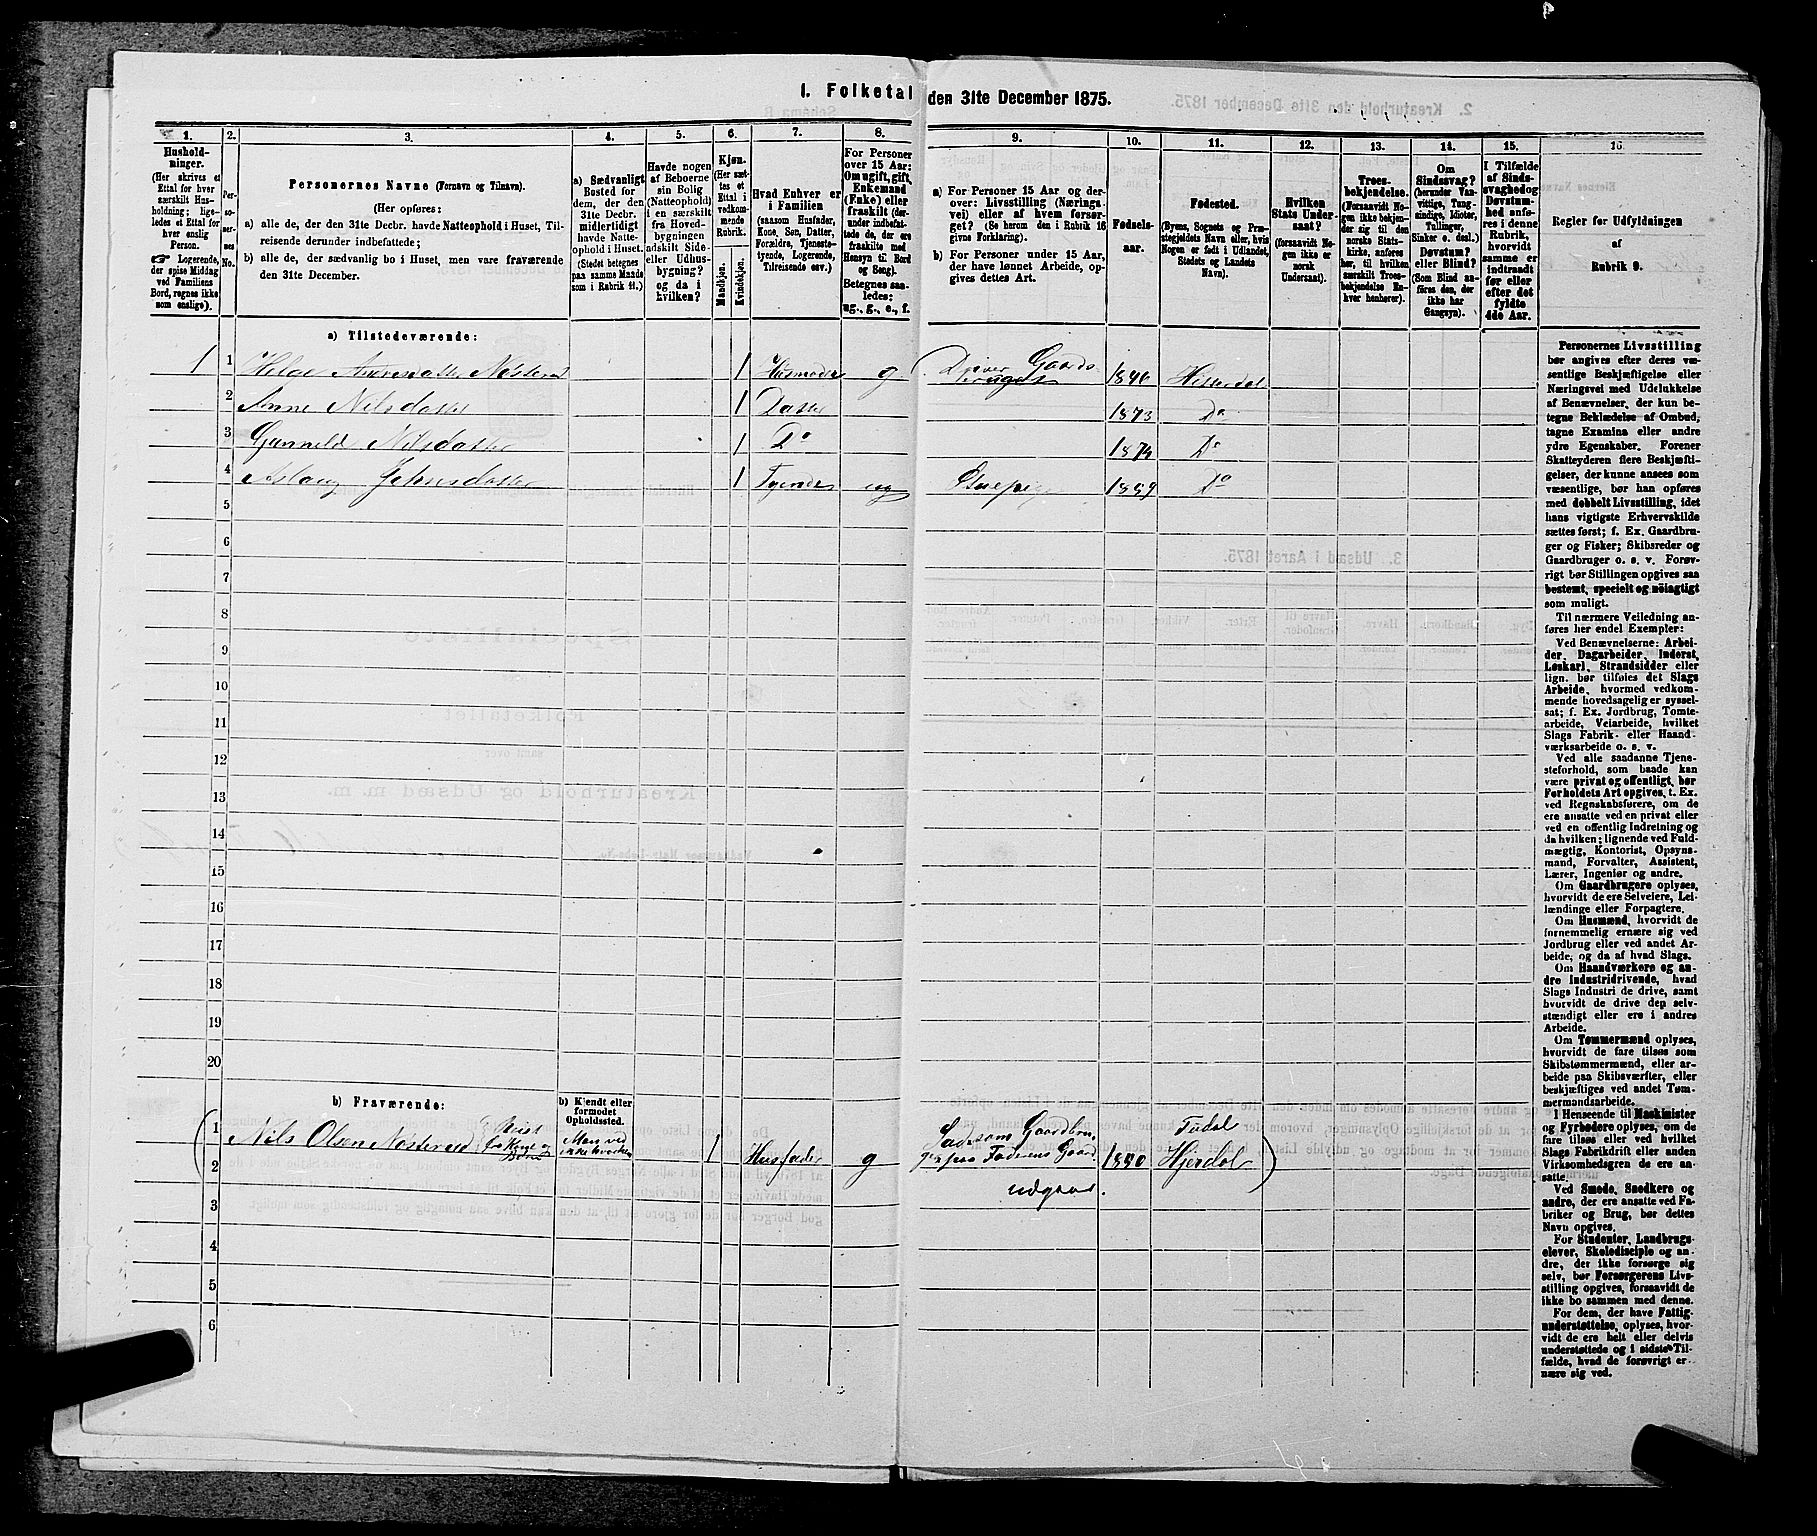 1. Folketal den 31te December 1875.
1.
Hushold-
ninger.
(Her skrives et
Ettal for hver
særskilt Hus-
holdning; lige-
ledes et Ettal for
hver enslig
Person.
☞ Logerende,
der spise Middag
ved Familiens
Bord, regnes ikke
som enslige).
2.
Per-
so-
ner-
nes
No.
3.
Personernes Navne (Fornavn og Tilnavn).
(Her opføres:
a) alle de, der den 31te Decbr. havde Natteophold i Huset, Til-
reisende derunder indbefattede;
b) alle de, der sædvanlig bo i Huset, men vare fraværende
den 31te December.
4.
a) Sædvanligt
Bosted for
dem, der den
31te Decbr.
midlertidigt
havde Natte-
ophold i Huset.
(Stedet betegnes
paa samme Maade
som i Rubrik 11.)
5.
Havde nogen
af Beboerne
sin Bolig
(Natteophold)
i en særskilt
fra Hoved-
bygningen
adskilt Side-
eller Udhus-
bygning?
og da i
hvilken?
6.
Kjøn.
(Her sæt-
tes et
Ettal i
vedkom-
mende
Rubrik.
Mandkjøn.
Kvindekjøn.
7.
Hvad Enhver er
i Familien
(saasom Husfader,
Kone, Søn, Datter,
Forældre, Tjeneste-
tyende, Logerende,
Tilreisende osv.)
8.
For Personer
over 15 Aar:
Om ugift, gift,
Enkemand
(Enke) eller
fraskilt (der-
under indbefat-
tede de, der ere
fraskilte med
Hensyn til Bord
og Seng).
Betegnes saa-
ledes:
ug., g., e., f.
9.
a) For Personer 15 Aar og der-
over: Livsstilling (Nærings-
vei) eller af hvem forsør-
get? (Se herom den i Rubrik 16
givne Forklaring).
b) For Personer under 15 Aar,
der have lønnet Arbeide, op-
gives dettes Art.
10.
Fødsels-
aar.
11.
Fødested.
(Byens, Sognets og Præ-
stegjeldets Navn eller, hvis
Nogen er født i Udlandet,
Stedets og Landets
Navn).
12.
Hvilken
Stats Under-
saat?
(forsaavidt No-
gen ikke er
norsk
Undersaat).
13.
Troes-
bekjendelse.
(Forsaavidt No-
gen ikke bekjen-
der sig til den
norske Stats-
kirke, anføres
her, til hvilken
særskilt Troes-
bekjendelse En-
hver henhører).
14.
Om
Sindssvag?
(herunder Van-
vittige, Tung-
sindige, Idioter,
Tullinger,
Sinker o. desl.)
Døvstum?
eller Blind?
(Som Blind an-
føres den, der
ikke har
Gangsyn).
15.
I Tilfælde
af Sinds-
svaghed og
Døvstum-
hed anfø-
res i denne
Rubrik,
hvorvidt
samme er
indtraadt
før eller
efter det
fyldte
4de Aar.
16.
Regler for Udfyldningen
af
Rubrik 9.
a) Tilstedeværende:
1 1 Helge Nøsterud 1 Husmoder g Driver Gaards brugets 1840 Hitterdal
2 Anne Nilsdatter 1 Datter 1873 Do
3 Gunnild Nilsdatter 1 Do 1874 Do
4 Aslaug Johnsdatter 1 Tyende ug 1859 Do
5
6
7
8
9
10
11
12
13
14
15
16
17
18
19
20
b) Fraværende:
b) Kjendt eller
formodet
Opholdssted.
(1 Nils Olsen Nøsterud Reist fra Kone og Børn Man ved ikke hvorhen 1 Husfader g
Gaardbru-
ger paa Faderens Gaard 1850 Hjerdal )
udgaar.
2
3
4
5
6
Personernes Livsstilling
bør angives efter deres væ-
sentlige Beskjæftigelse eller
Næringsvei med Udelukkelse
af Benævnelser, der kun be-
tegne Beklædelse af Ombud,
tagne Examina eller andre
ydre Egenskaber. Forener
Skatteyderen flere Beskjæfti-
gelser, der kunne ansees som
væsentlige, bør han opføres
med dobbelt Livsstilling, idet
hans vigtigste Erhvervskilde
sættes først; f. Ex. Gaardbru-
ger og Fisker; Skibsreder og
Gaardbruger o. s. v. Forøv-
rigt bør Stillingen opgives saa
bestemt, specielt og nöiagtigt
som muligt.
Til nærmere Veiledning an-
føres her endel Exempler:
Ved Benævnelserne: Arbei-
der, Dagarbeider, Inderst,
Løskarl, Strandsidder eller
lign. bør tilføies det Slags
Arbeide, hvormed vedkom-
mende hovedsagelig er syssel-
sat; f. Ex. Jordbrug, Tomte-
arbeide, Veiarbeide, hvilket
Slags Fabrik- eller Haand-
værksarbeide o. s. v.
Ved alle saadanne Tjene-
steforhold, som baade kan
være privat og offentligt, bør
Forholdets Art opgives, t. Ex.
ved Regnskabsførere, om de
ere ansatte ved en privat eller
ved en offentlig Indretning og
da hvilken; lignende ved Fuld-
mægtig, Kontorist, Opsyns-
mand, Forvalter, Assistent,
Lærer, Ingeniør og andre.
Om Gaardbrugere oplyses,
hvorvidt de ere Selveiere, Lei-
lændinge eller Forpagtere.
Om Husmænd, hvorvidt de
fornemmelig ernære sig ved
Jordbrug eller ved andet Ar-
beide, og da af hvad Slags.
Om Haandværkere og an-
dre Industridrivende, hvad
Slags Industri de drive, samt
hvorvidt de drive den selv-
stændigt eller ere i andres
Arbeide.
Om Tømmermænd oplyses,
hvorvidt de fare tilsøs som
Skibstømmermænd, eller ar-
beide paa Skibsværfter, eller
beskjæftiges ved andet Tøm-
mermandsarbeide.
I Henseende til Maskinister
og Fyrbødere oplyses, om de
fare tilsøs eller ved hvilket
Slags Fabrikdrift eller anden
Virksomhedsgren de ere an-
satte.
Ved Smede, Snedkere og
andre, der ere ansatte ved Fa-
briker og Brug, bør dettes
Navn opgives.
For Studenter, Landbrugs-
elever, Skoledisciple og an-
dre, der ikke forsørge sig
selv, bør Forsørgerens Livs-
stilling opgives, forsaavidt de
ikke bo sammen med denne.
For dem, der have Fattig-
understøttelse, oplyses, hvor-
vidt de ere helt eller delvis
understøttede og i sidste Til-
fælde, hvad de forøvrigt er-
nære sig ved.